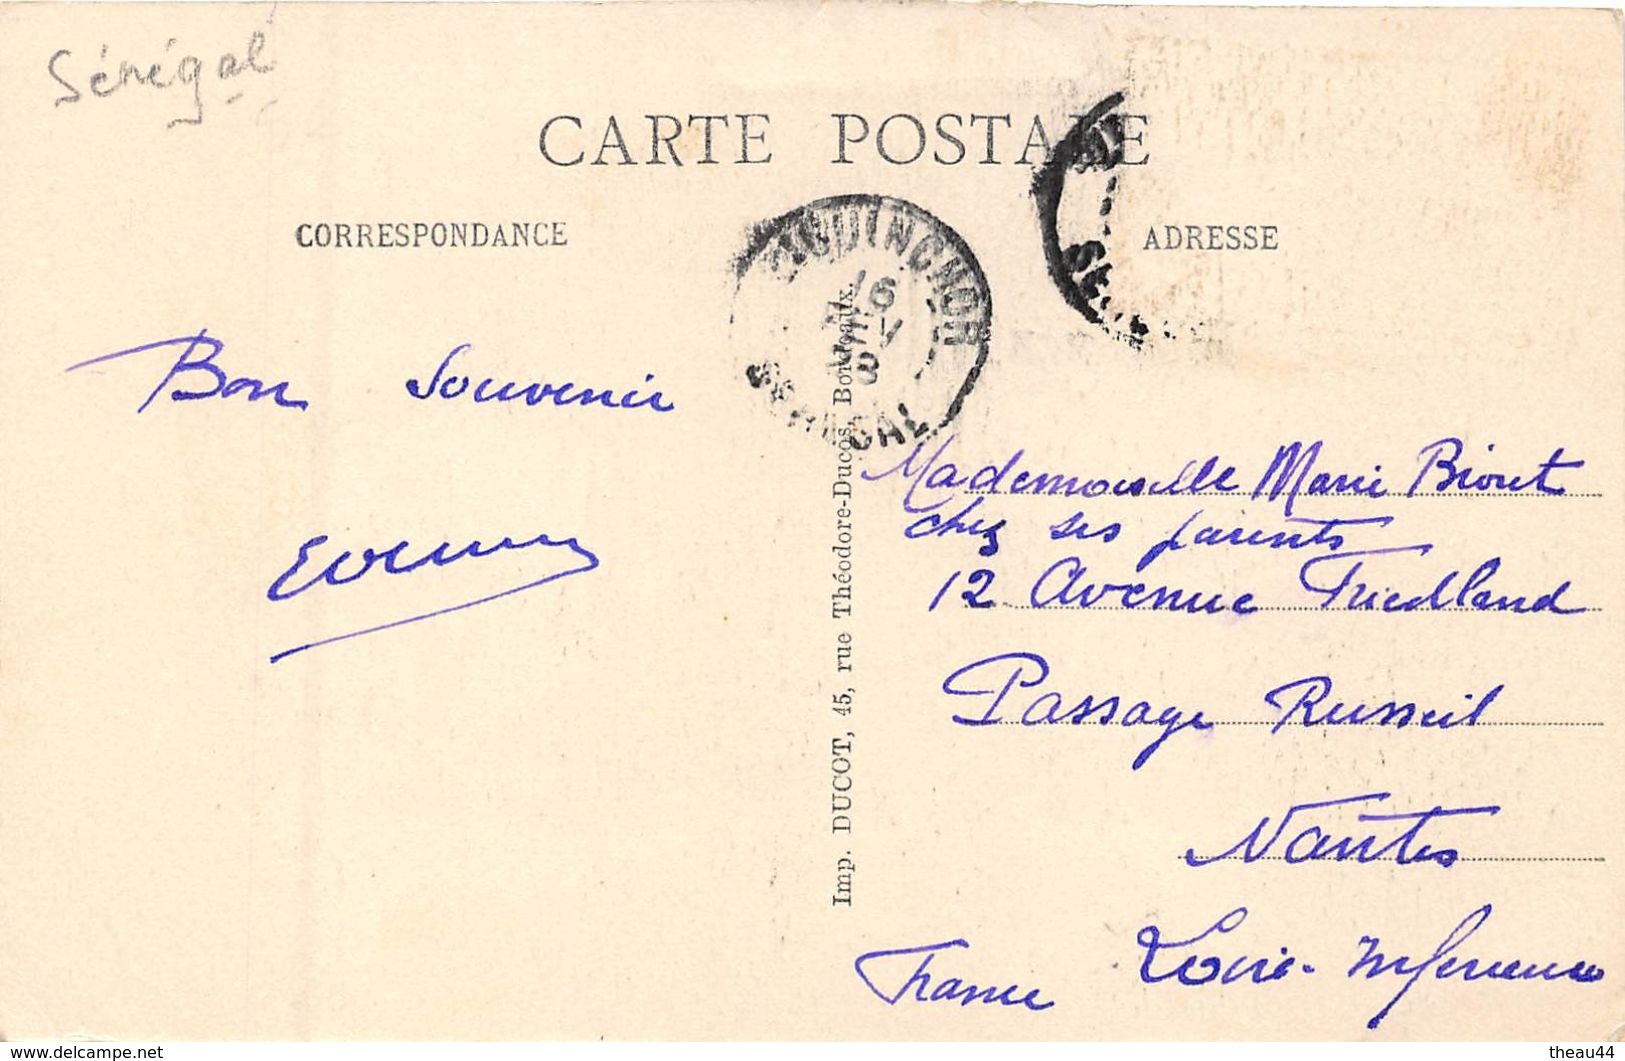 Sénégal
CARTE POSTALE
CORRESPONDANCE
ADRESSE
ZIGUINCHOR
16
SENEGAL
Bon Souvenir
Imp. DUCOT, 45, rue Théodore-Ducos, Bordeaux.
Mademoiselle Marie
chez ses parents
12 Avenue Friedland
Passage Russeil
Nantes
Loire-Inferieure
France
www.delcampe.net
theau44